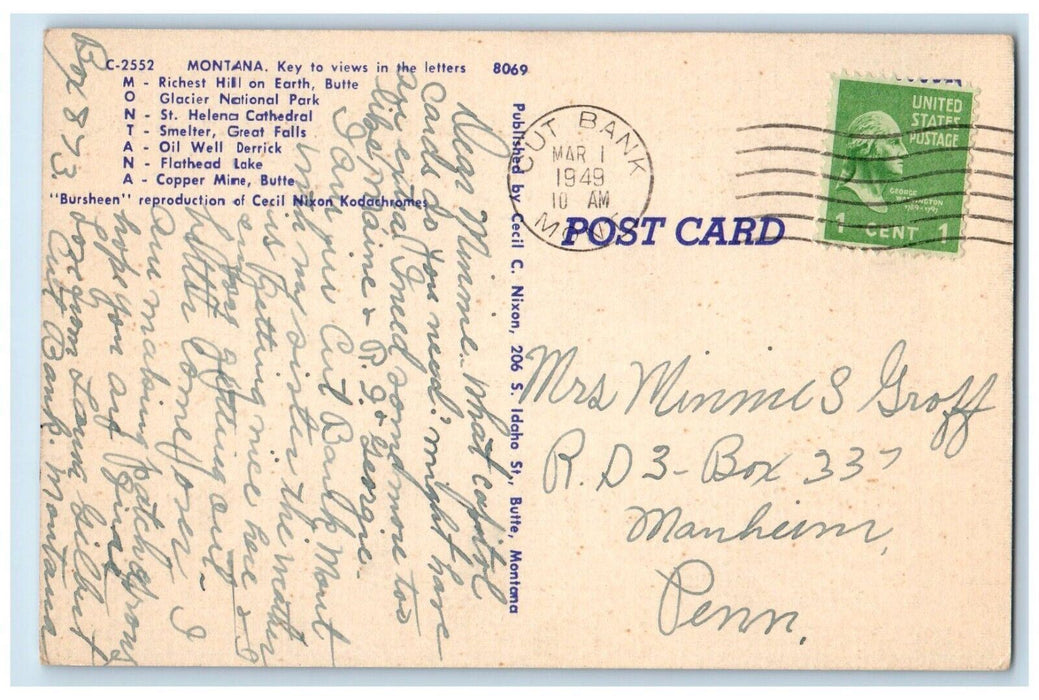 C-2552 MONTANA. Key to views in the letters 8069
M - Richest Hill on Earth, Butte
O - Glacier National Park
N - St. Helena Cathedral
T - Smelter, Great Falls
A - Oil Well Derrick
N - Flathead Lake
A - Copper Mine, Butte
"Bursheen" reproduction of Cecil Nixon Kodachromes
Published by Cecil C. Nixon, 206 S. Idaho St., Butte, Montana
CUT BANK
MAR 1
1949
10 AM
MONT.
UNITED
STATES
POSTAGE
GEORGE
WASHINGTON
1789-1797
1 CENT 1
POST CARD
Mrs Minnie S Groff
R. D 3 - Box 337
Manheim,
Penn.
Dear Minnie. What capitol
cards do you need. might have
an extra. I need some more too
like Maine & R.I. & George.
I own you Cut Bank Mont
from my sister the weather
is getting nice here &
boy getting out
little - I
am making patch
hope you are
Louise Gilbert
Box 873
Cut Bank. Montana